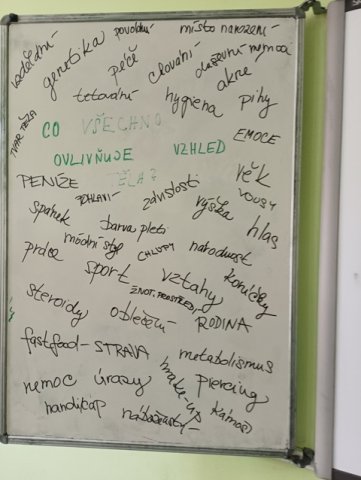 povolání místo narození
vzdělání genetika péče chování duševní nemoc
tetování hygiena akne pihy
TVAR TĚLA
CO VŠECHNO EMOCE
OVLIVŇUJE VZHLED
PENÍZE TĚLA? věk
POHLAVÍ závislosti VOUSY
spánek barva pleti výška hlas
práce módní styl CHLUPY národnost
sport vztahy koníčky
steroidy ŽIVOT. PROSTŘEDÍ
oblečení RODINA
fastfood - STRAVA metabolismus
nemoc úrazy make-up piercing
handicap náboženství kamarádi